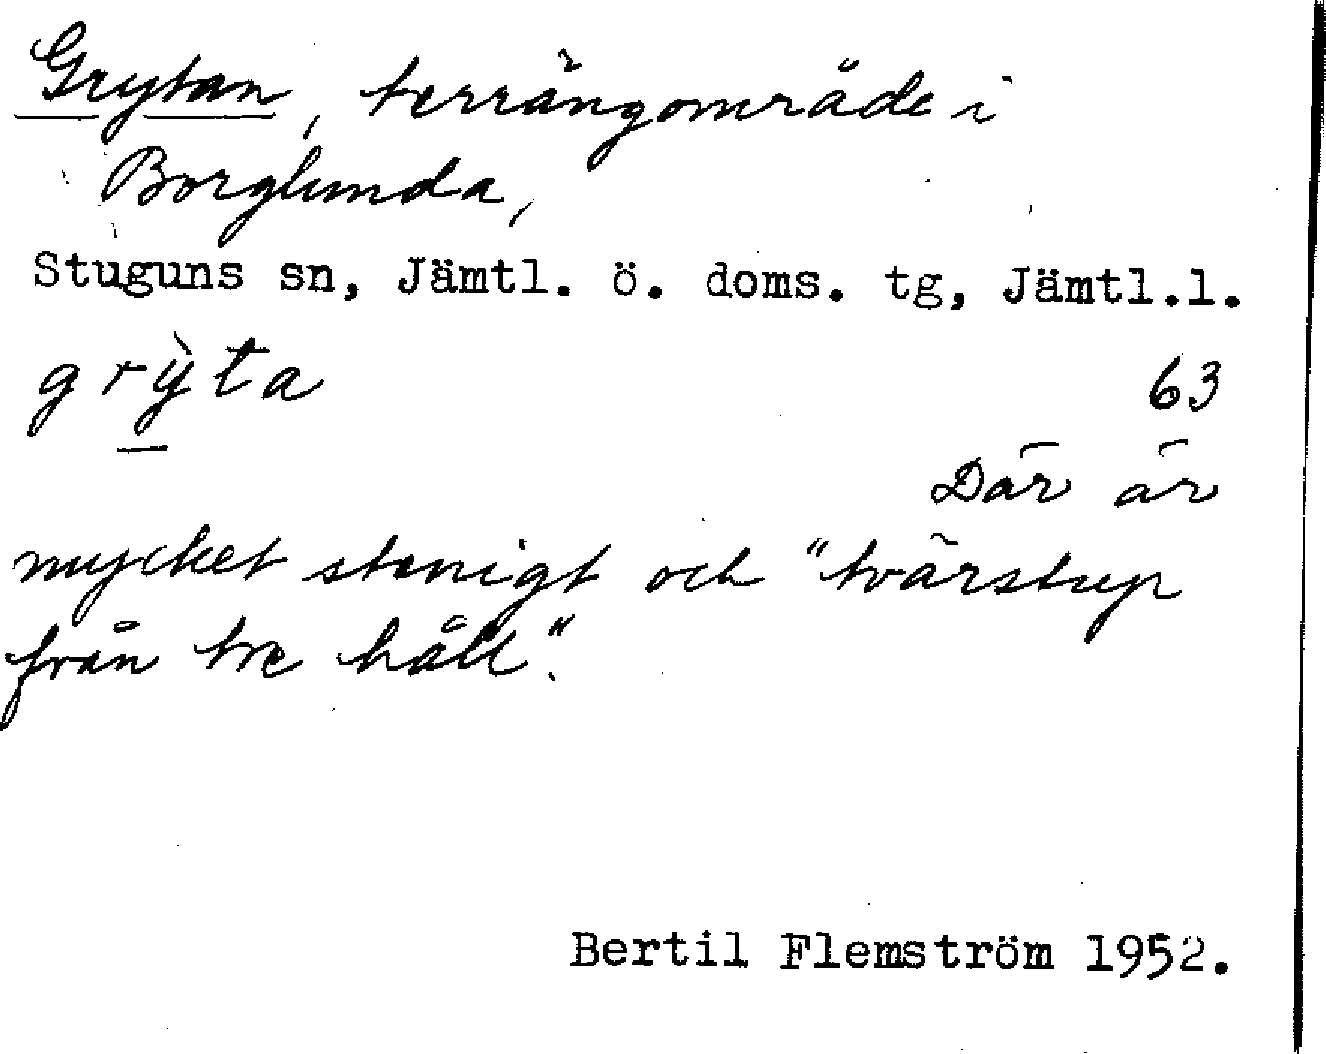 Grytan, terrängområde i
Borglunda,
Stuguns sn, Jämtl. ö. doms. tg, Jämtl.l.
grỳta 63
Där är
mycket stenigt och "tvärstup
från tre håll".
Bertil Flemström 1952.